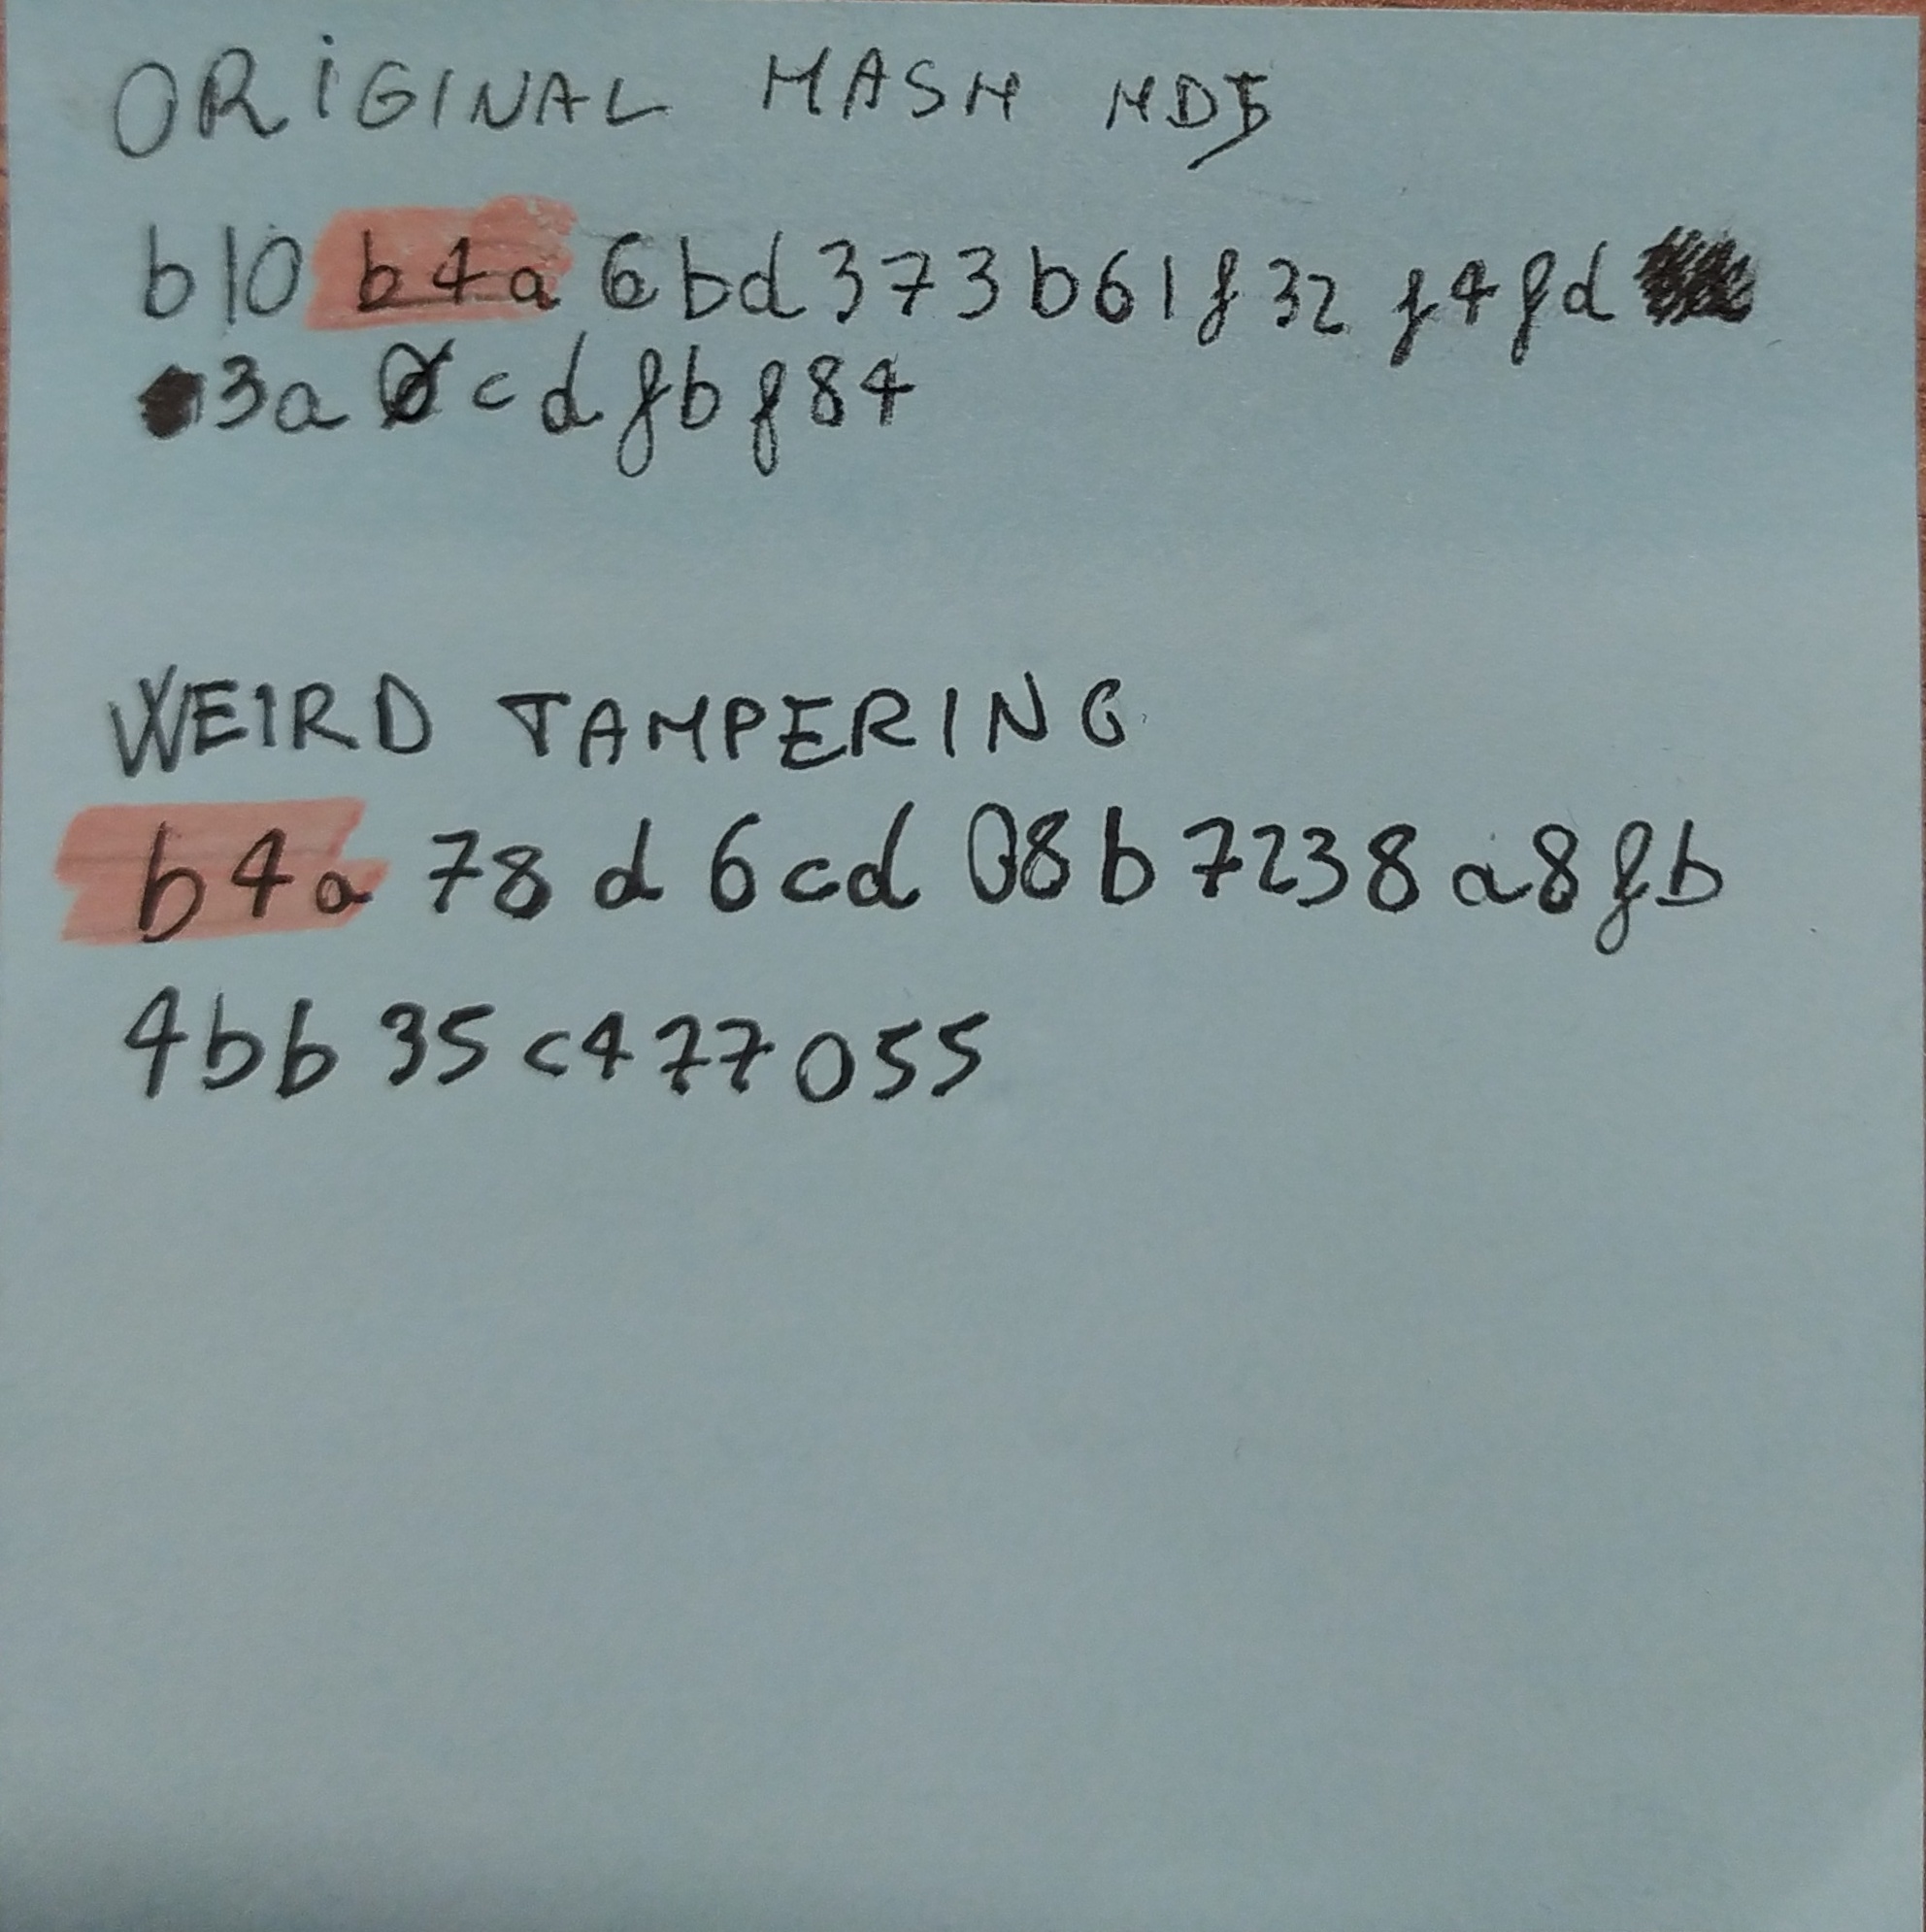 ORiGINAL HASH MD5
b10 b4a 6bd373b61f32 f4fd
3a cdfbf84
WEIRD TAMPERING
b4a 78d6cd08b7238a8fb
4bb35c477055